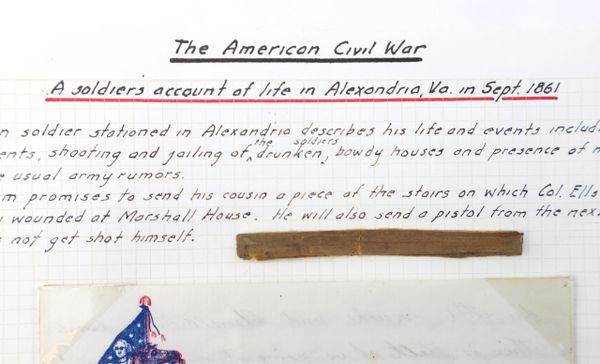 The American Civil War
A soldiers account of life in Alexandria, Va. in Sept. 1861
n soldier stationed in Alexandria describes his life and events includi
the soldiers
ents, shooting and jailing of drunken, bowdy houses and presence of
e usual army rumors.
m promises to send his cousin a piece of the stairs on which Col. Ells
wounded at Marshall House. He will also send a pistol from the next
not get shot himself.